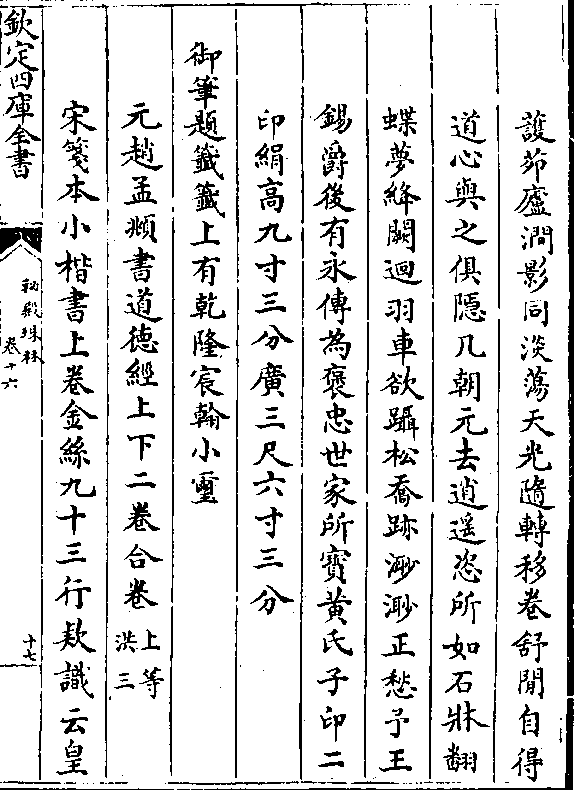 護茆廬澗影同淡蕩天光隨轉移卷舒閒自得
道心與之俱隱几朝元去逍遥恣所如石牀翻
蝶夢絳闕迴羽車欲躡松喬跡渺渺正愁予王
錫爵後有永傳為褒忠世家所寶黄氏子印二
印絹高九寸三分廣三尺六寸三分
御筆題籤籤上有乾隆宸翰小璽
元趙孟頫書道德經上下二卷合卷上等洪三
宋箋本小楷書上卷金絲九十三行欵識云皇
欽定四庫全書
秘殿珠林
卷十六
十七